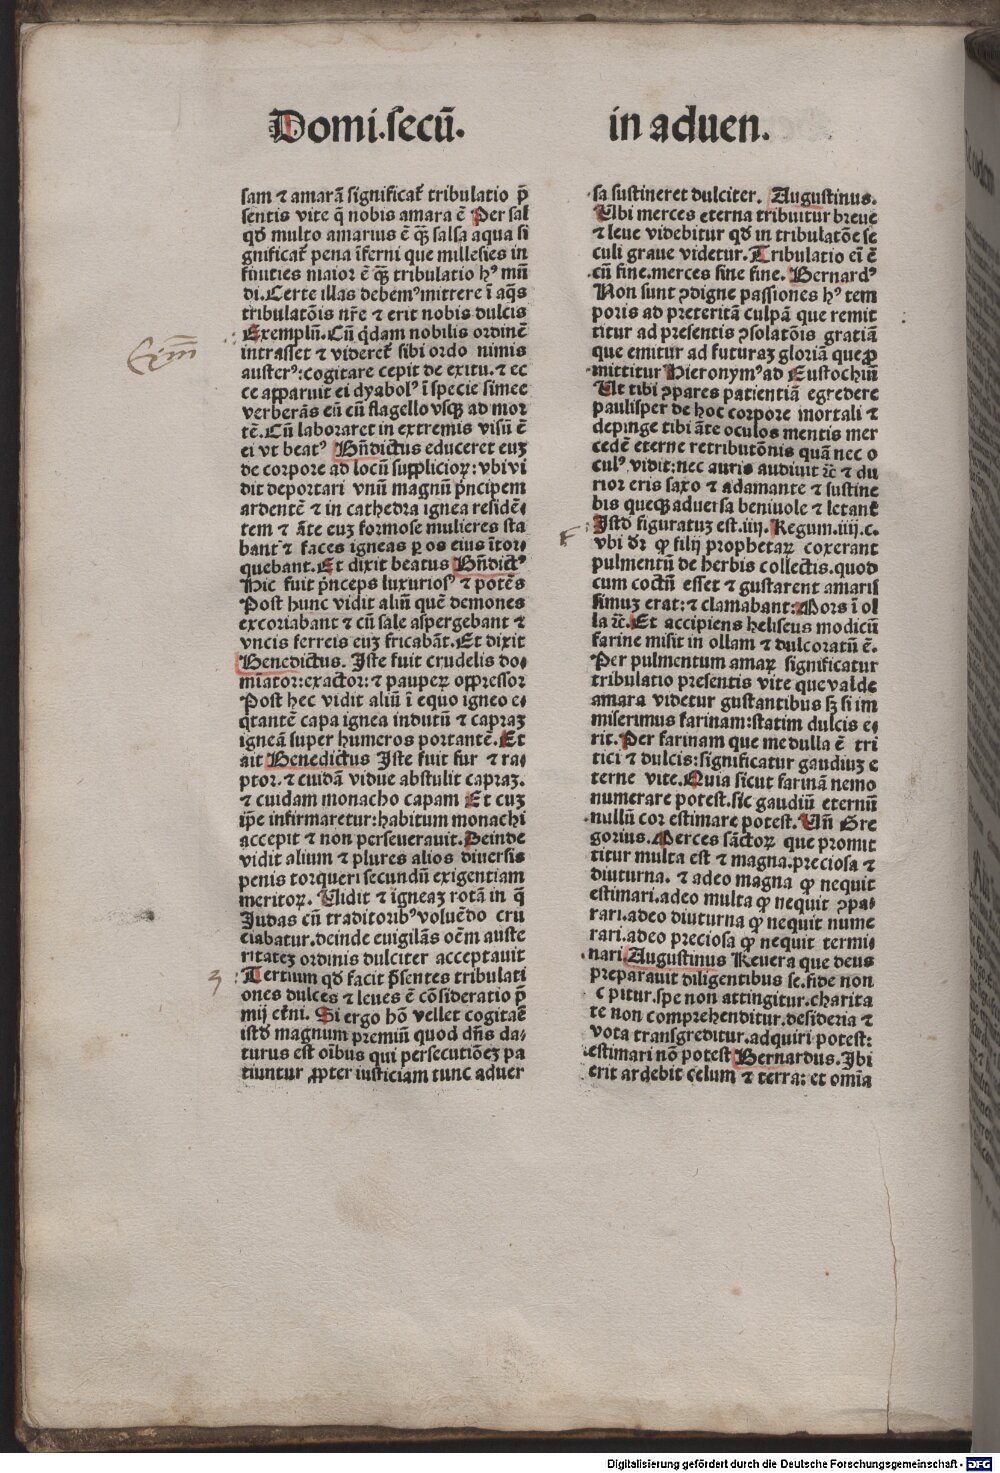 Domi.secū. in aduen.
sam ⁊ amarā significat̄ tribulatio p̄
sentis vite q̄ nobis amara ē Per sal
qd̄ multo amarius ē q̄ꝫ salsa aqua si
gnificat̄ pena īferni que millesies in
finities maior ē q̄ꝫ tribulatio hꝰ mū
di.Certe illas debemꝰ mittere ī aq̄s
tribulatōis nr̄e ⁊ erit nobis dulcis
Exemplū.Cū q̇dam nobilis ordinē
intrasset ⁊ videret̄ sibi ordo nimis
austerꝰ:cogitare cepit de exitu.⁊ ec
ce apparuit ei dyabolꝰ ī specie simee
verberās eū cū flagello vsqꝫ ad mor
tē.Cū laboraret in extremis visū ē
ei vt beatꝰ Bn̄dictus educeret euꝫ
de corpore ad locū supplicioꝝ:vbi vi
dit deportari vnū magnū p̄ncipem
ardentē ⁊ in cathedra ignea residē⸗
tem ⁊ āte euꝫ formose mulieres sta
bant ⁊ faces igneas ꝑ os eius ītor⸗
quebant.Et dixit beatus Bn̄dictꝰ
Hic fuit p̄nceps luxuriosꝰ ⁊ potēs
Post hunc vidit aliū quē demones
excoriabant ⁊ cū sale aspergebant ⁊
vncis ferreis euꝫ fricabāt.Et dixit
Benedictus. Iste fuit crudelis do⸗
miator:exactor:⁊ pauperꝝ oppressor
Post hec vidit aliū ī equo igneo e⸗
q̇tantē capa ignea indutū ⁊ capraꝫ
igneā super humeros portantē.Et
ait Benedictus Iste fuit fur ⁊ ra⸗
ptor.⁊ cuidā vidue abstulit capraꝫ.
⁊ cuidam monacho capam Et cuꝫ
ip̄e infirmaretur:habitum monachi
accepit ⁊ non perseuerauit.Deinde
vidit alium ⁊ plures alios diuersis
penis torqueri secundū exigentiam
meritoꝝ. Vidit ⁊ igneaꝫ rotā in q̄
Judas cū traditoribꝰ voluēdo cru
ciabatur.deinde euigilās oēm auste
ritateꝫ ordinis dulciter acceptauit
Tertium qd̄ facit p̄sentes tribulati
ones dulces ⁊ leues ē cōsideratio p̄
mij et̄ni. Si ergo hō vellet cogitaē
istd̄ magnum premiū quod dn̄s da⸗
turus est oībus qui persecutiōeꝫ pa
tiuntur ꝓpter iusticiam tunc aduer
Exm̄
3
sa sustineret dulciter. Augustinus.
Vbi merces eterna tribuitur breue
⁊ leue videbitur qd̄ in tribulatōe se
culi graue videtur.Tribulatio eī ē
cū fine.merces sine fine. Bernardꝰ
Non sunt ꝯdigne passiones hꝰ tem
poris ad preteritā culpā que remit
titur ad presentis ꝯsolatōis gratiā
que emitur ad futuraꝫ gloriā que ꝓ
mittitur Hieronymꝰ ad Eustochiū
Vt tibi ꝯpares patientiā egredere
paulisper de hoc corpore mortali ⁊
depinge tibi āte oculos mentis mer
cedē eterne retributōnis quā nec o
culꝰ vidit:nec auris audiuit rc̄ ⁊ du
rior eris saxo ⁊ adamante ⁊ sustine
bis quecꝫ aduersa beniuole ⁊ letant̄
Istd̄ figuratuꝫ est.iiij. Regum.iiij.c.
vbi dr̄ ꝙ filij prophetaꝝ coxerant
pulmentū de herbis collectis.quod
cum coctū esset ⁊ gustarent amaris
simuꝫ erat:⁊ clamabant:Mors ī ol
la rc̄.Et accipiens heliseus modicū
farine misit in ollam ⁊ dulcoratū ē.
Per pulmentum amaꝝ significatur
tribulatio presentis vite que valde
amara videtur gustantibus sꝫ si im
miserimus farinam:statim dulcis e⸗
rit.Per farinam que medulla ē tri
tici ⁊ dulcis:significatur gaudiuꝫ e
terne vite.Quia sicut farinā nemo
numerare potest.sic gaudiū eternū
nullū cor estimare potest.Vn̄ Gre
gorius.Merces sāctoꝝ que promit
titur multa est ⁊ magna.preciosa ⁊
diuturna.⁊ adeo magna ꝙ nequit
estimari.adeo multa ꝙ nequit ꝯpa⸗
rari.adeo diuturna ꝙ nequit nume
rari.adeo preciosa ꝙ nequit termi⸗
nari.Augustinus Reuera que deus
preparauit diligentibus se.fide non
c pitur.spe non attingitur.charita
te non comprehenditur.desideria ⁊
vota transgreditur.adquiri potest:
estimari nō potest Bernardus.Ibi
erit ardebit celum ⁊ terra: et omīa
F
Digitalisierung gefördert durch die Deutsche Forschungsgemeinschaft - DFG